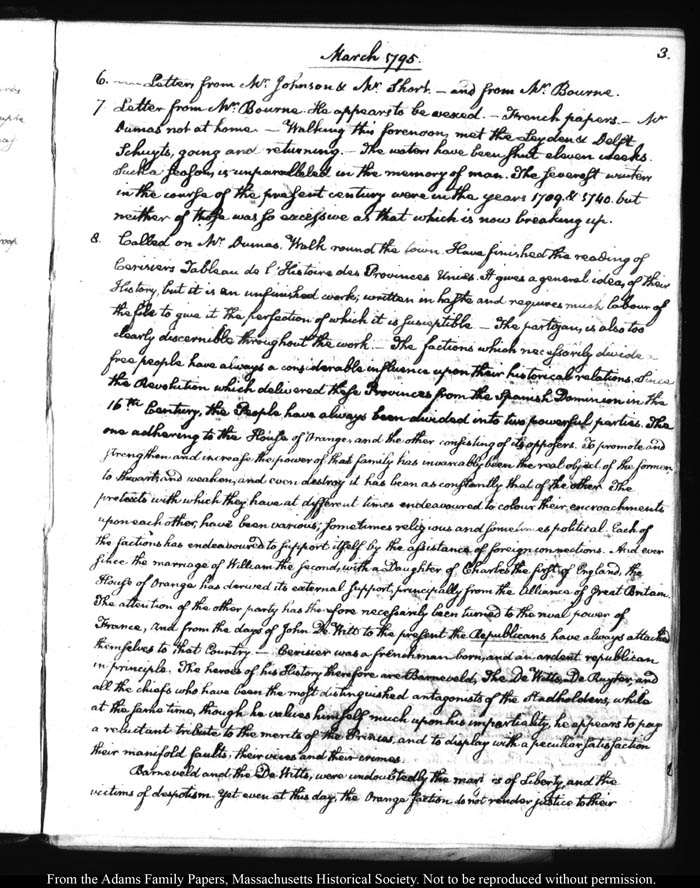 March 1795.
3.
6. Letters from Mr. Johnson & Mr. Short. — and from Mr. Bourne.
7 Letter from Mr. Bourne. He appears to be vexed. — French papers. — Mr
Dumas not at home — Walking this forenoon, met the Leyden & Delft
Schuyts, going and returning. — The waters have been shut eleven weeks.
Such a season, is unparalleled in the memory of man. The severest winters
in the course of the present century were in the years 1709. & 1740. but
neither of these was so excessive as that which is now breaking up.
8. Called on Mr. Dumas. Walk round the town. Have finished the reading of
Cerisiers Tableau de l'Histoire des Provinces Unies. It gives a general idea, of their
History, but it is an unfinished work; written in haste and requires much labour of
the file to give it the perfection of which it is susceptible — The partizan, is also too
clearly discernible throughout the work — The factions which necessarily divide a
free people have always a considerable influence upon their historical relations. Since
the Revolution which delivered these Provinces from the Spanish Dominion in the
16th. Century, the People have always been divided into two powerful parties. The
one adhering to the House of Orange, and the other consisting of its opposers. To promote and
strengthen and increase the power of that family has invariably been the real object of the former,
to thwart, and weaken, and even destroy it has been as constantly that of the other. The
pretexts with which they have at different times endeavoured to colour their encroachments
upon each other, have been various; sometimes religious and sometimes political. Each of
the factions has endeavoured to support itself by the assistance of foreign connections. And ever
since the marriage of William the second, with a Daughter of Charles the first of England, the
House of Orange has derived its external support, principally from the alliance of Great Britain.
The attention of the other party has therefore necessarily been turned to the rival power of
France, and from the days of John De Witt to the present the Republicans, have always attached
themselves to that Country — Cerisier was a frenchman born, and an ardent republican
in principle. The heroes of his History therefore are Barneveld, The De Witts, De Ruyter, and
all the chiefs who have been the most distinguished antagonists of the Stadholders, while
at the same time, though he values himself much upon his impartiality, he appears to pay
a reluctant tribute to the merits of the Princes, and to display with a peculiar satisfaction
their manifold faults, their vices and their crimes.
Barneveld and the De Witts, were undoubtedly the martyrs of Liberty, and the
victims of despotism. Yet even at this day, the Orange faction do not render justice to their
From the Adams Family Papers, Massachusetts Historical Society. Not to be reproduced without permission.